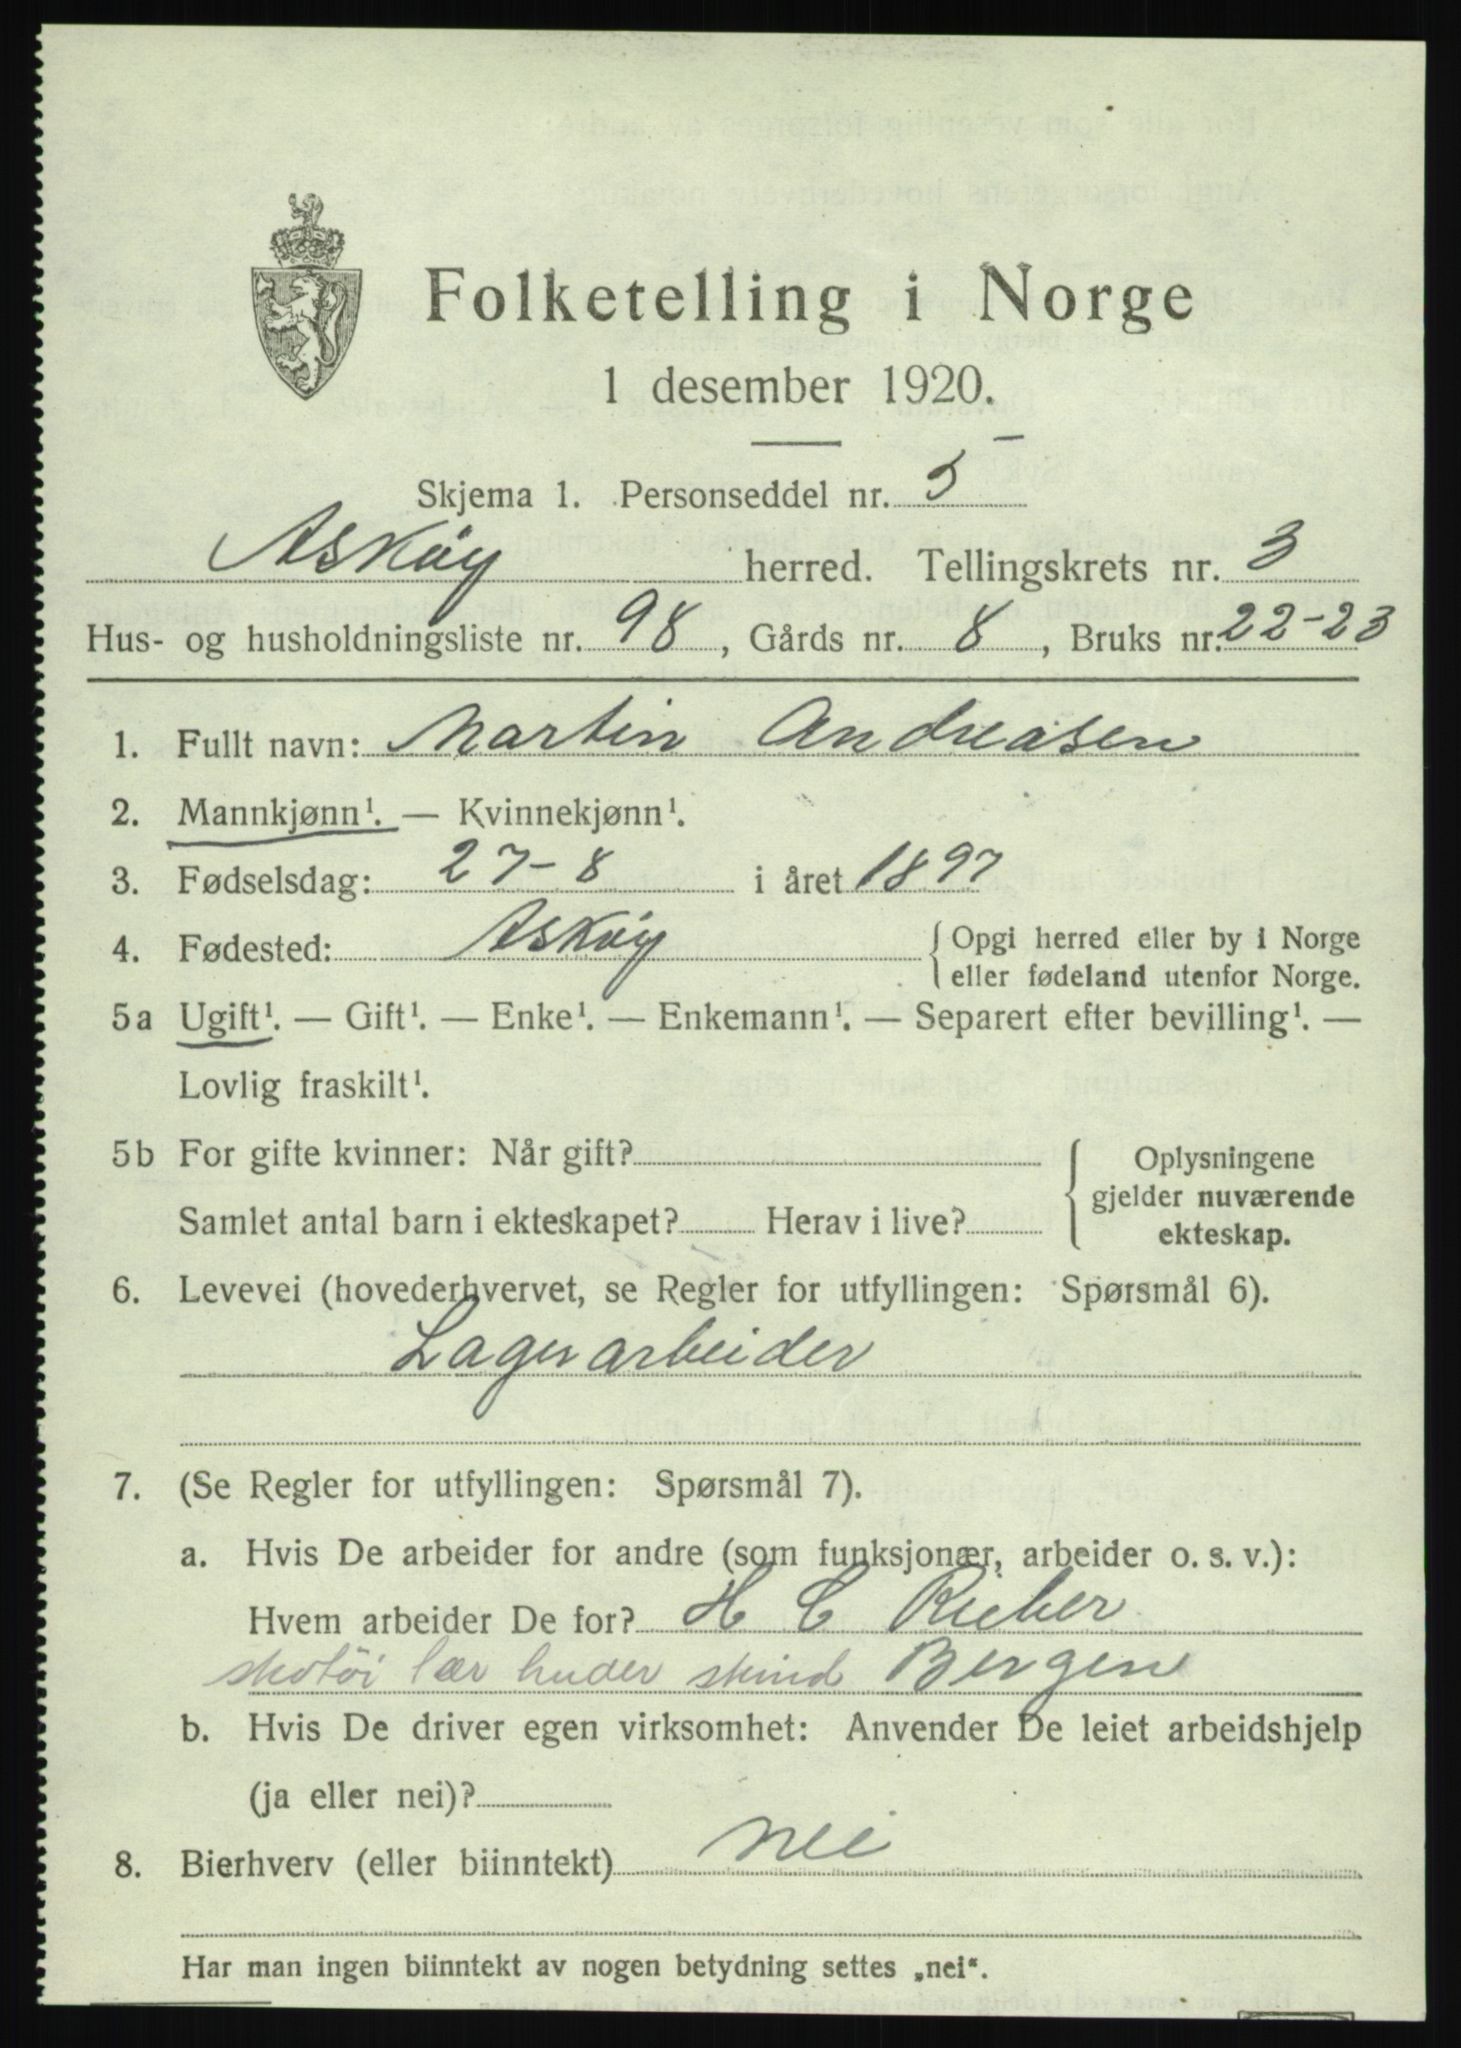 Folketelling i Norge
1 desember 1920.
Skjema 1. Personseddel nr. 5
Askøy herred. Tellingskrets nr. 3
Hus- og husholdningsliste nr. 98, Gårds nr. 8, Bruks nr. 22-23
1. Fullt navn: Martin Andreasen
2. Mannkjønn¹. — Kvinnekjønn¹.
3. Fødselsdag: 27-8 i året 1897
4. Fødested: Askøy { Opgi herred eller by i Norge
eller fødeland utenfor Norge.
5a Ugift¹. — Gift¹. — Enke¹. — Enkemann¹. — Separert efter bevilling¹. —
Lovlig fraskilt¹.
5b For gifte kvinner: Når gift? { Oplysningene
gjelder nuværende
Samlet antal barn i ekteskapet? Herav i live?
ekteskap.
6. Levevei (hovederhvervet, se Regler for utfyllingen: Spørsmål 6).
Lagerarbeider
7. (Se Regler for utfyllingen: Spørsmål 7).
a. Hvis De arbeider for andre (som funksjonær, arbeider o. s. v.):
Hvem arbeider De for? H C Rieber
skotöi lær huder skind Bergen
b. Hvis De driver egen virksomhet: Anvender De leiet arbeidshjelp
(ja eller nei)?
8. Bierhverv (eller biinntekt) nei
Har man ingen biinntekt av nogen betydning settes „nei“.